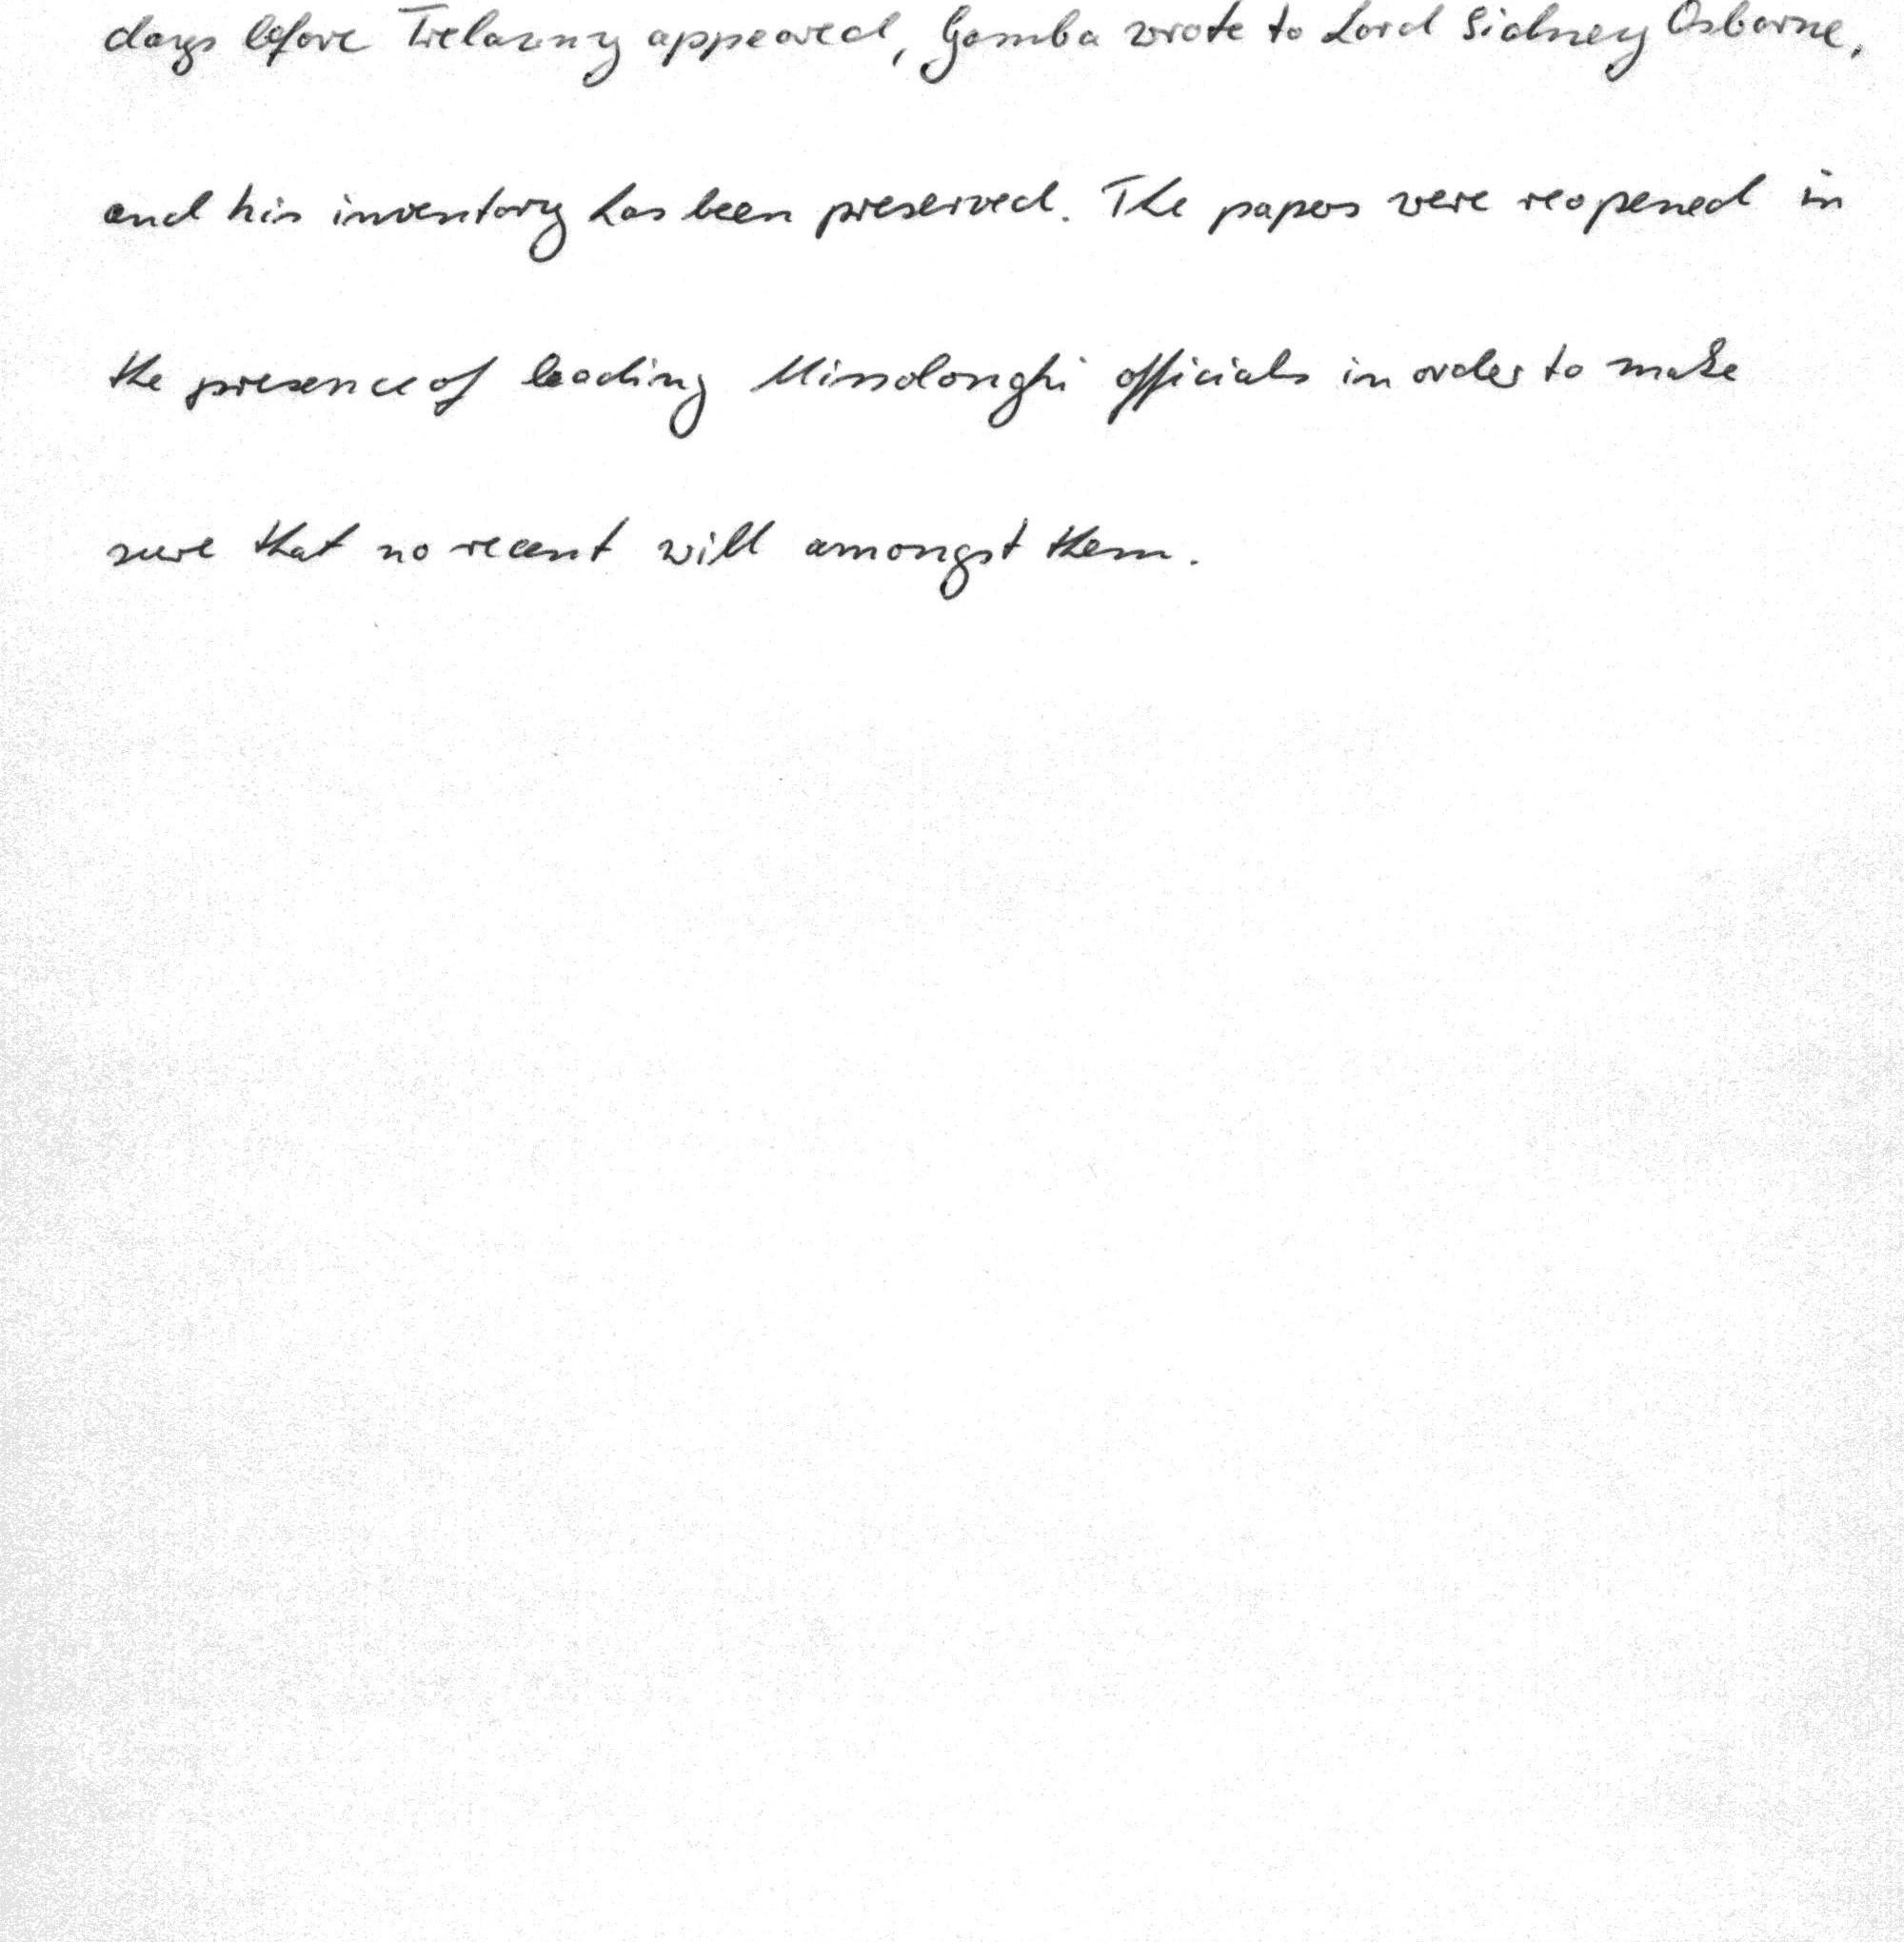 days before Trelawny appeared, Gamba wrote to Lord Sidney Osborne,
and his inventory has been preserved. The papers were reopened in
the presence of leading Missolonghi officials in order to make
sure that no recent will amongst them.